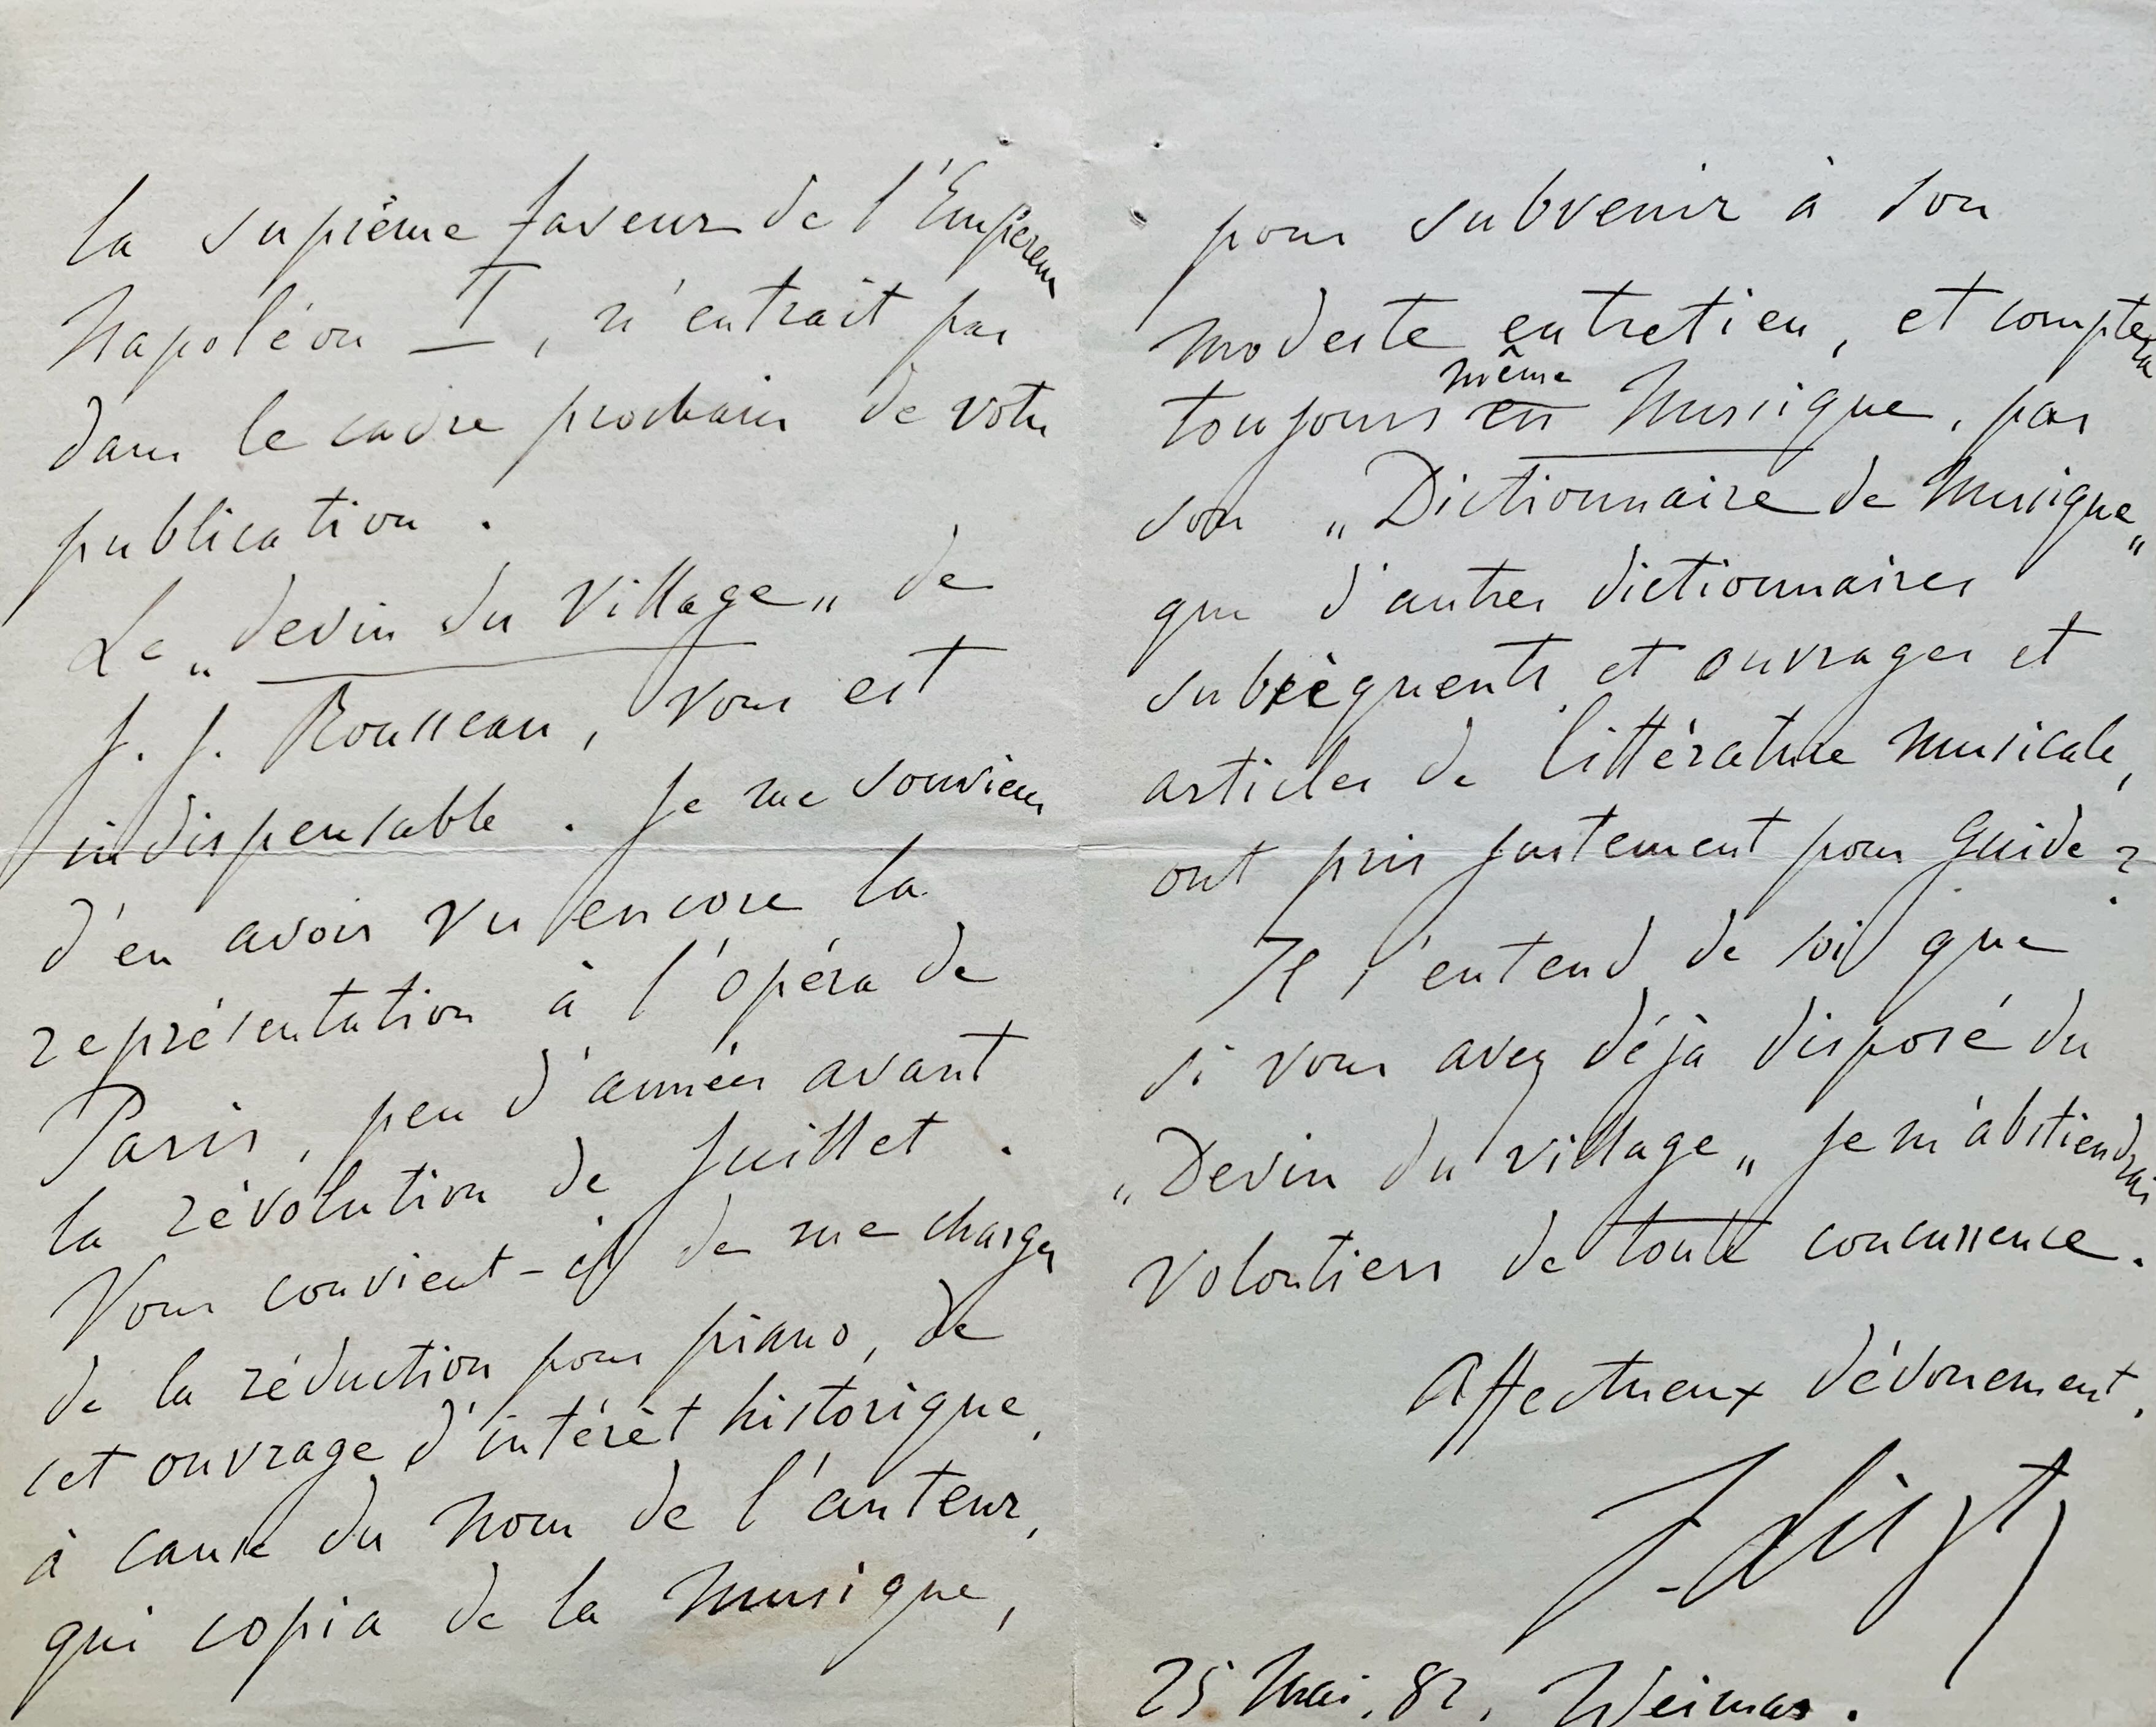 la suprême faveur de l'Empereur
Napoléon I, n'entrait pas
dans le cadre prochain de votre
publication.
Le „devin du Village„ de
J. J. Rousseau, vous est
indispensable. Je me souviens
d'en avoir vu encore la
représentation à l'opéra de
Paris, peu d'années avant
la révolution de Juillet.
Vous convient-il de me charger
de la réduction pour piano, de
cet ouvrage d'intérêt historique,
à cause du nom de l'auteur,
qui copia de la Musique,
pour subvenir à son
modeste entretien, et comptera
même
toujours en Musique, par
son „Dictionnaire de Musique„
que d'autres dictionnaires
subséquents et ouvrages et
articles de littérature musicale,
ont pris justement pour Guide?
Il s'entend de soi que
si vous avez déjà disposé du
„Devin du village„ je m'abstiendrai
volontiers de toute concurrence.
Affectueux dévouement,
F. Liszt
25 Mai, 82, Weimar.